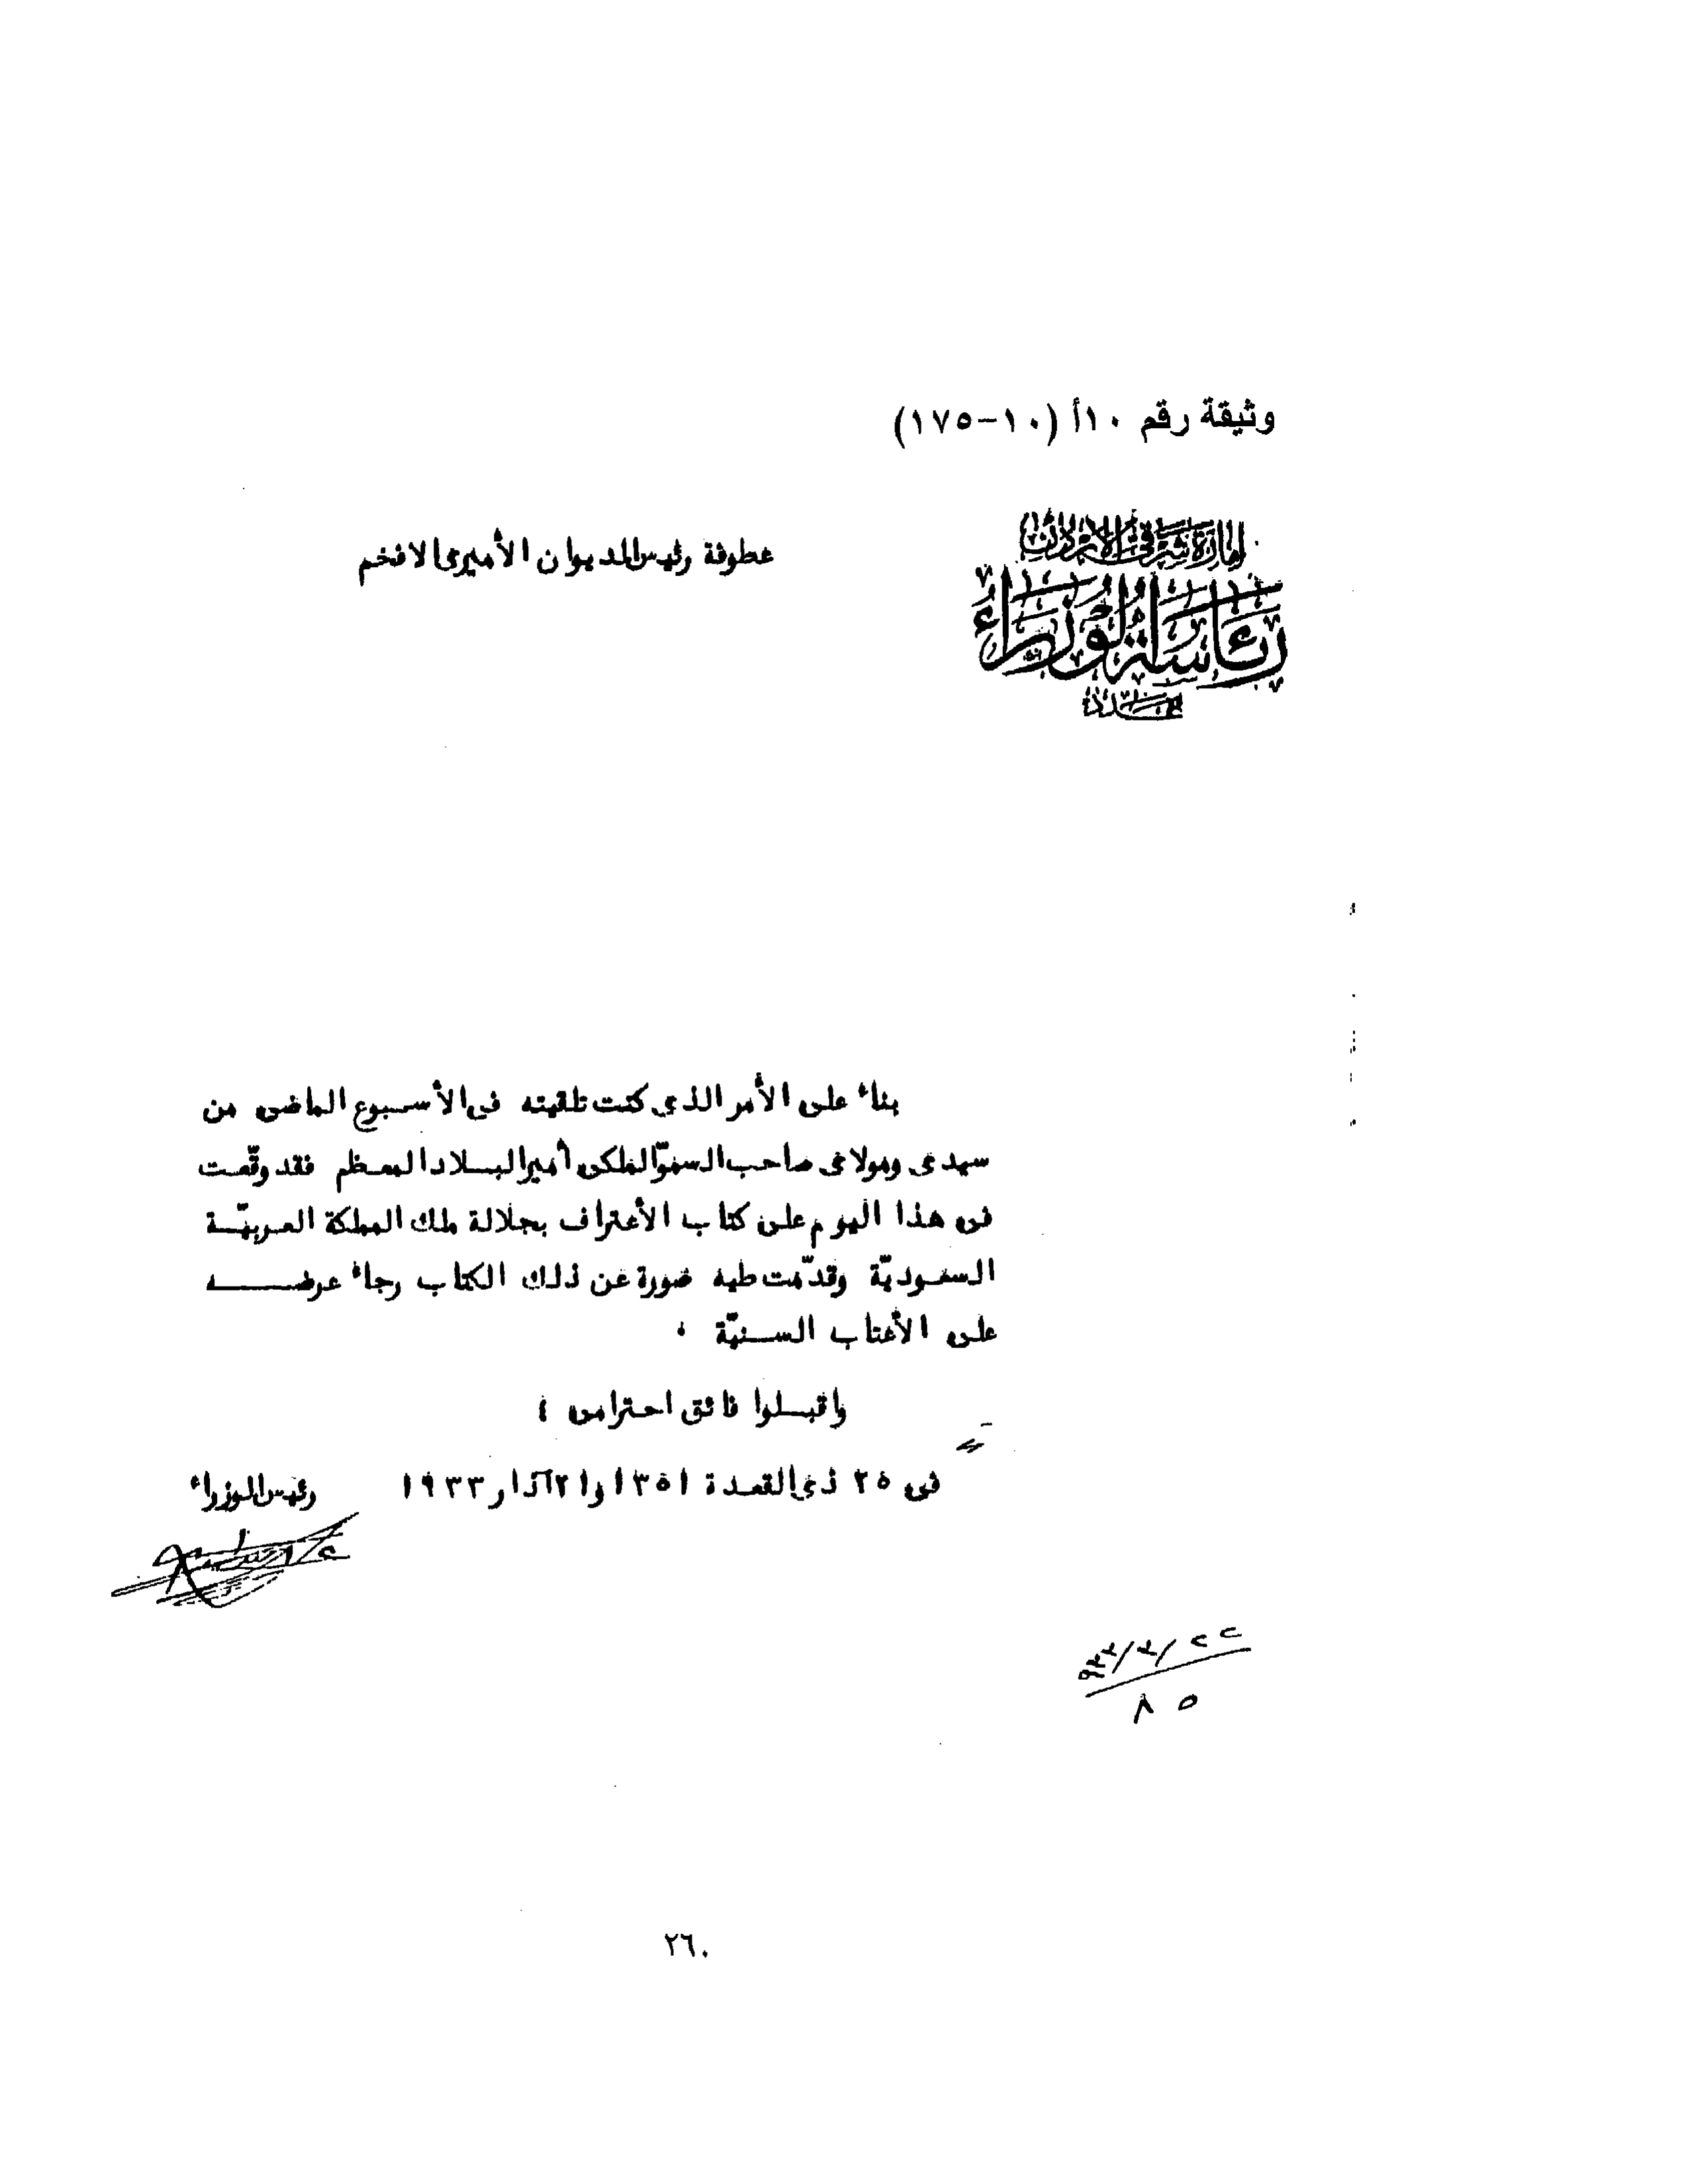 وثيقة رقم ١٠أ (١٠-١٧٥)
إمارة شرقي الأردن
رئاسة الوزراء
عطوفة رئيس الديوان الأميري الافخم
بناء على الأمر الذي كنت تلقيته في الأسبوع الماضي من
سيدي ومولاي صاحب السموّ الملكي أمير البلاد المعظم فقد وقّعت
في هذا اليوم على كتاب الأعتراف بجلالة ملك المملكة العربيّة
السعوديّة وقدّمت طيه صورة عن ذلك الكتاب رجاء عرضه
على الأعتاب السنيّة ٠
واقبلوا فائق احترامي ؛
في ٢٥ ذي القعدة ١٣٥١ و٢١ آذار ١٩٣٣
رئيس الوزراء
٢٢/٣/٩٣٣
٨٥
٢٦٠